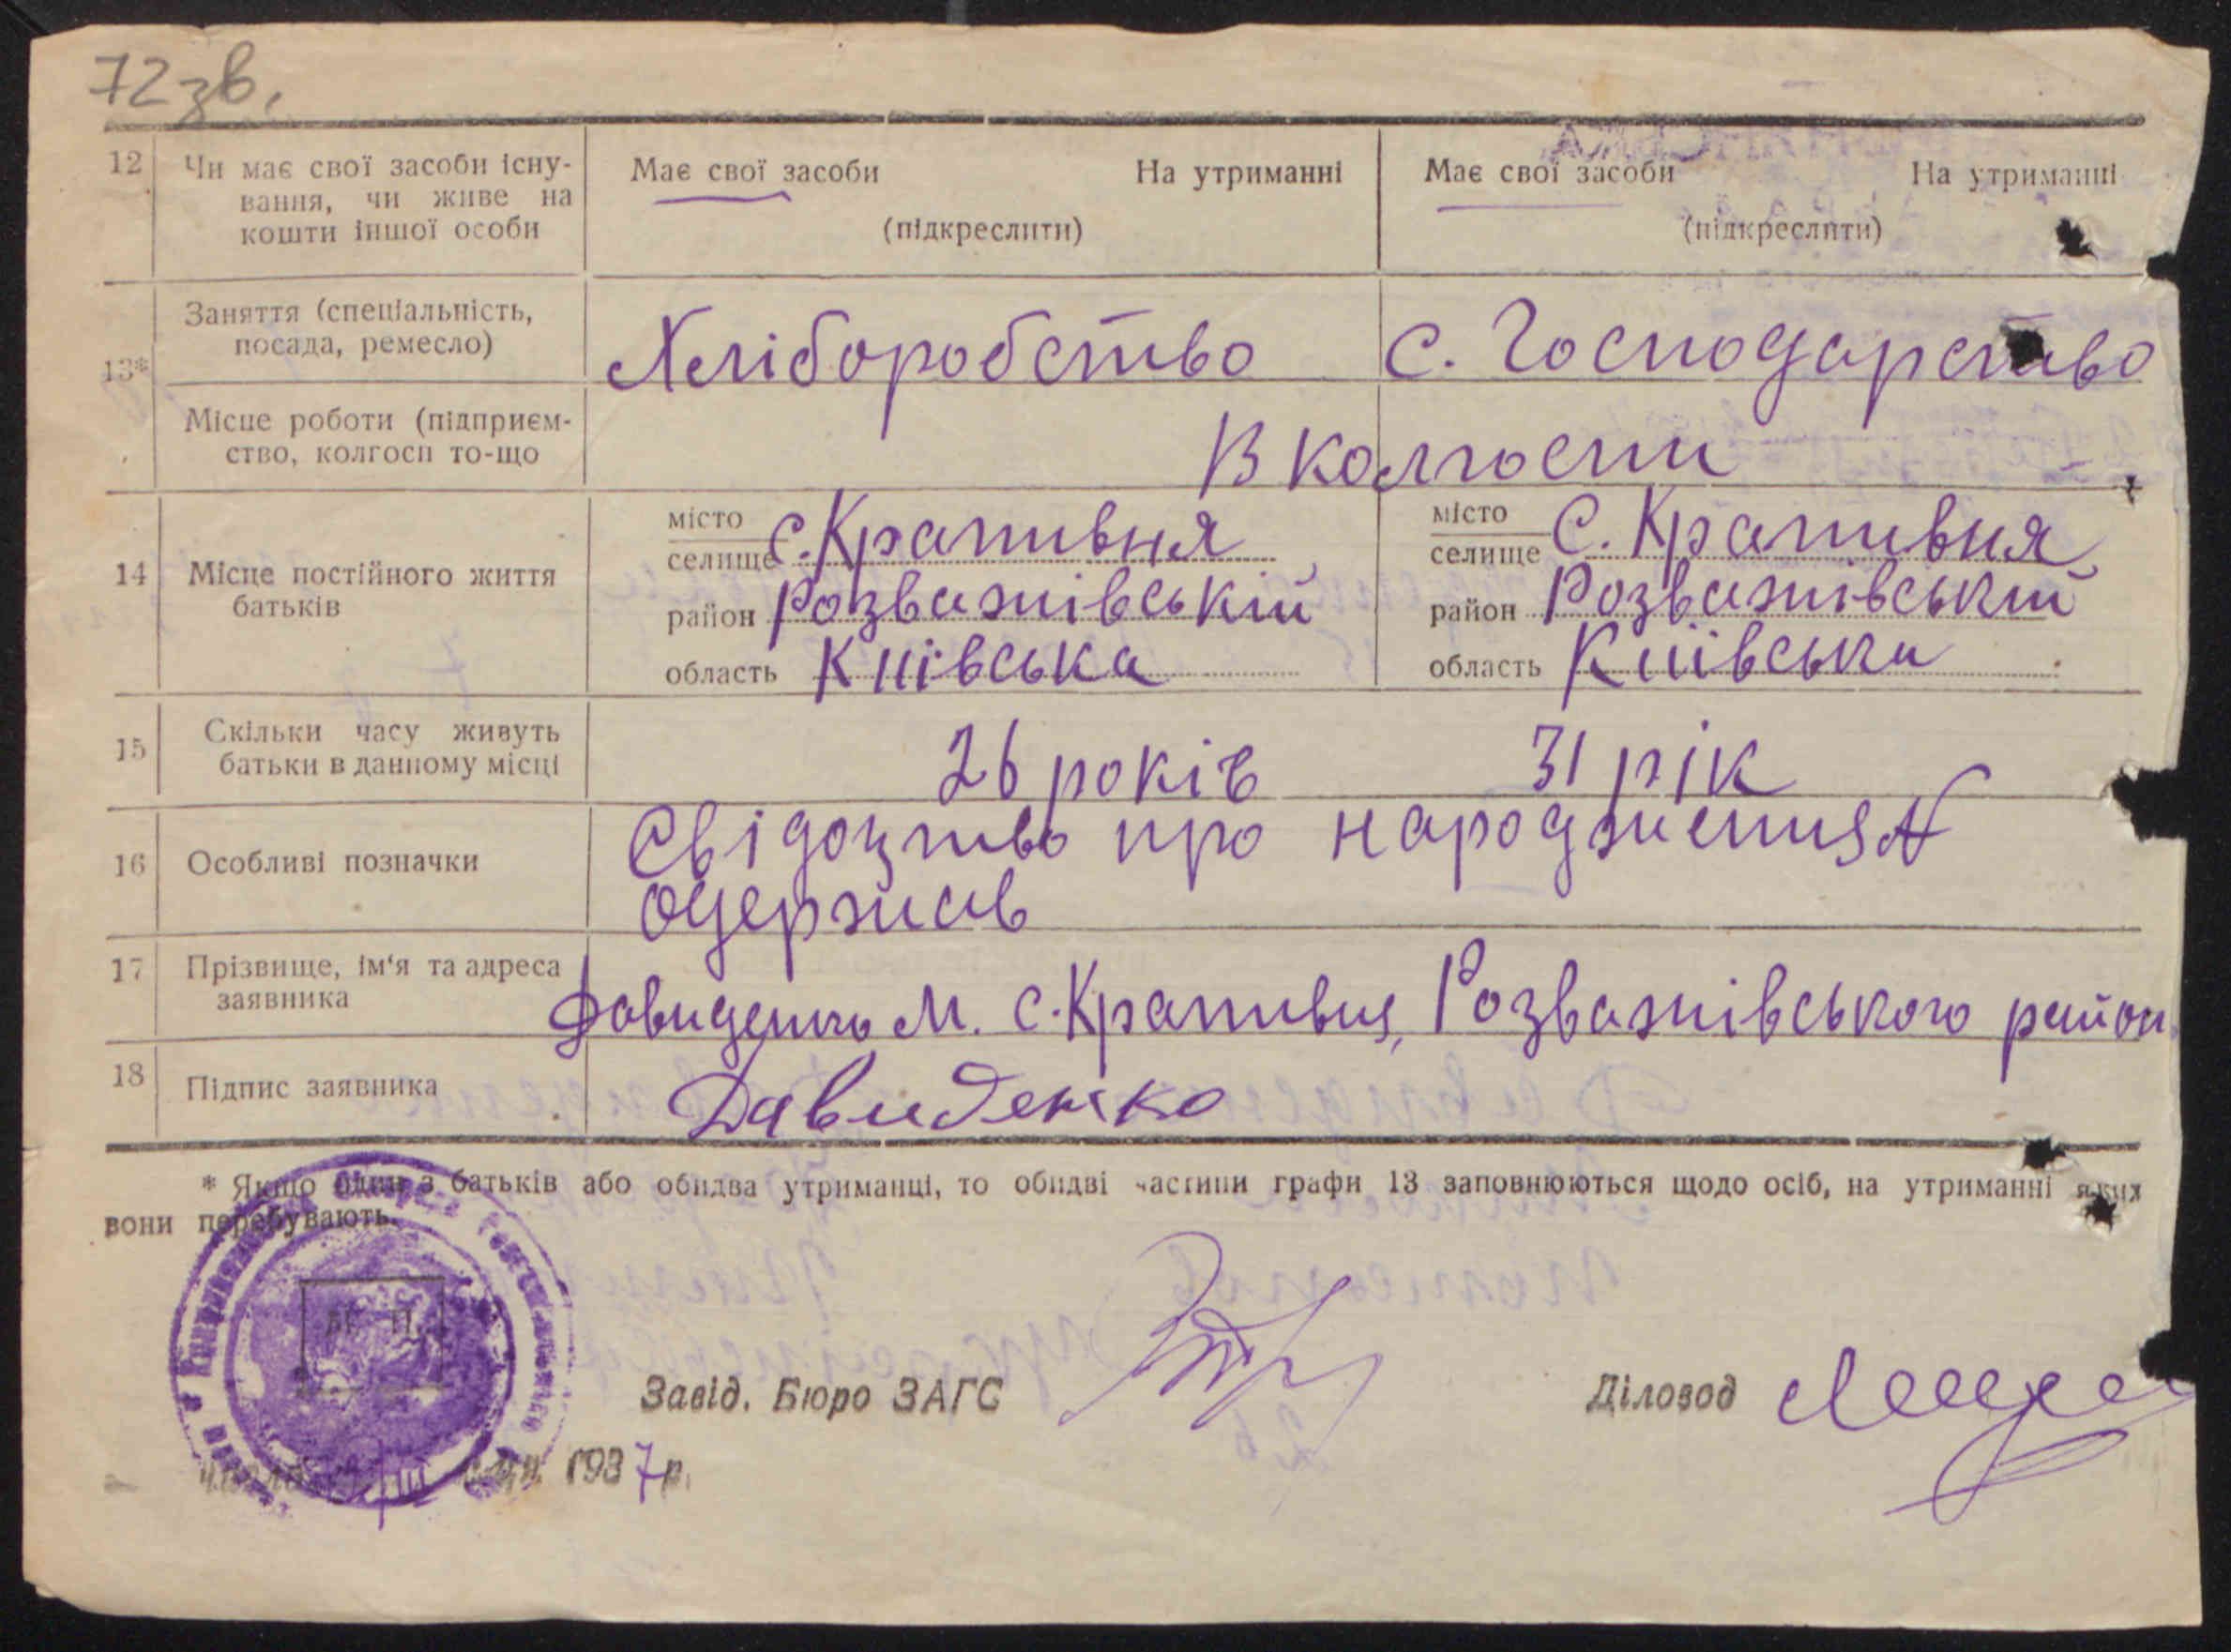 72 зв.
12 Чи має свої засоби існу- Має свої засоби На утриманні Має свої засоби На утриманні
вання, чи живе на
кошти іншої особи (підкреслити) (підкреслити)
Заняття (спеціальність,
посада, ремесло) Хліборобство С. Господарство
13*
Місце роботи (підприєм-
ство, колгосп то-що В колгоспи
місто місто
селище с. Крапивня селище С. Крапивня
14 Місце постійного життя
батьків район Розважівській район Розважівський
область Київська область Київська
15 Скільки часу живуть
батьки в данному місці 26 років 31 рік
16 Особливі позначки Свідоцтво про народження N
одержав
17 Прізвище, ім'я та адреса
заявника Давиденко М. с. Крапивня, Розважівського район
18 Підпис заявника Давиденко
* Якщо один з батьків або обидва утриманці, то обидві частини графи 13 заповнюються щодо осіб, на утриманні яких
вони перебувають.
М. П.
Завід. Бюро ЗАГС Діловод
1937 р.